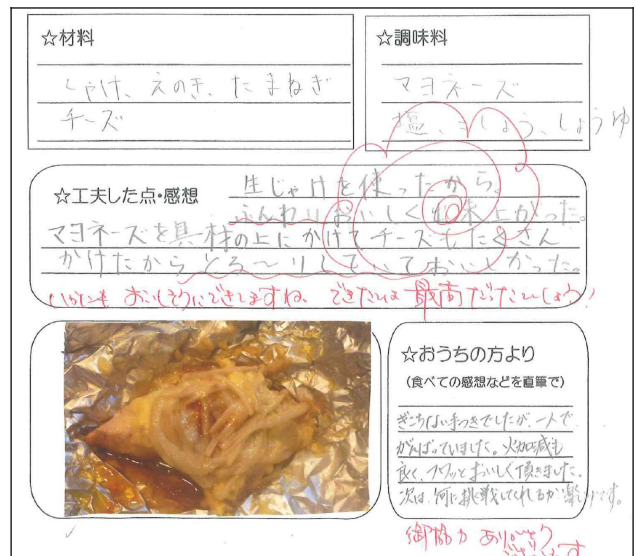 ☆材料
しゃけ、えのき、たまねぎ
チーズ
☆調味料
マヨネーズ
塩、こしょう、しょうゆ
☆工夫した点・感想
生じゃけを使ったから、
ふんわりおいしく出来上がった。
マヨネーズを具材の上にかけてチーズもたくさん
かけたからとろ〜りしていておいしかった。
いかにもおいしそうにできてますね。できたては最高だったでしょう!
☆おうちの方より
(食べての感想などを直筆で)
ぎこちない手つきでしたが、一人で
がんばっていました。火加減も
良く、フワッとおいしく頂きました。
次は、何に挑戦してくれるか楽しみです。
御協力 ありがとう
ございます